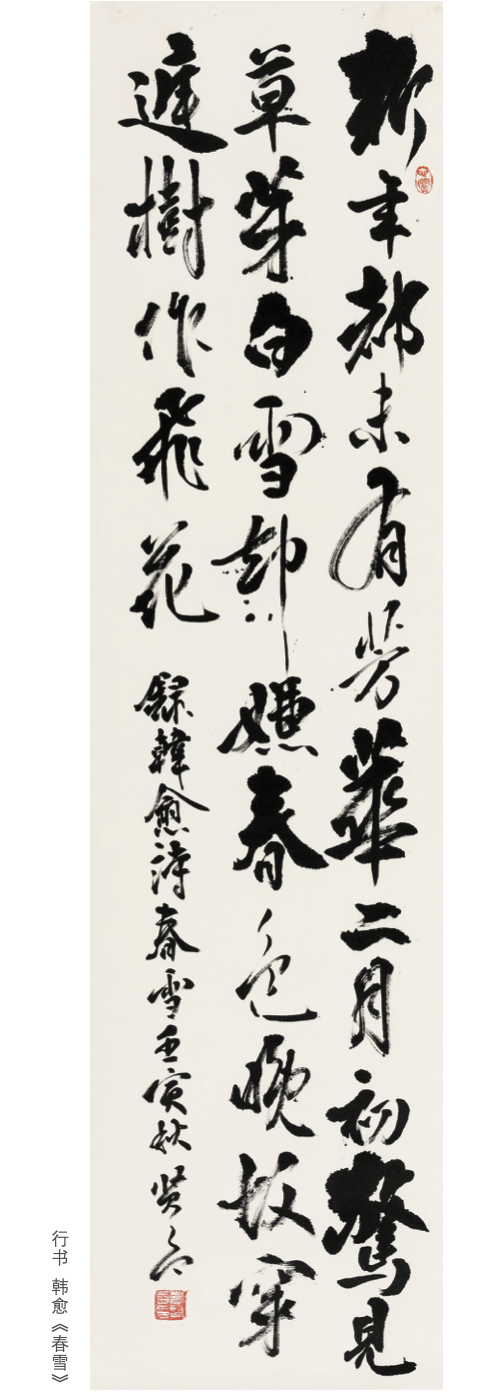 新年都未有芳華二月初驚見
草芽白雪却嫌春色晚故穿
庭樹作飛花
録韓愈詩春雪壬寅秋賢
行书 韩愈《春雪》